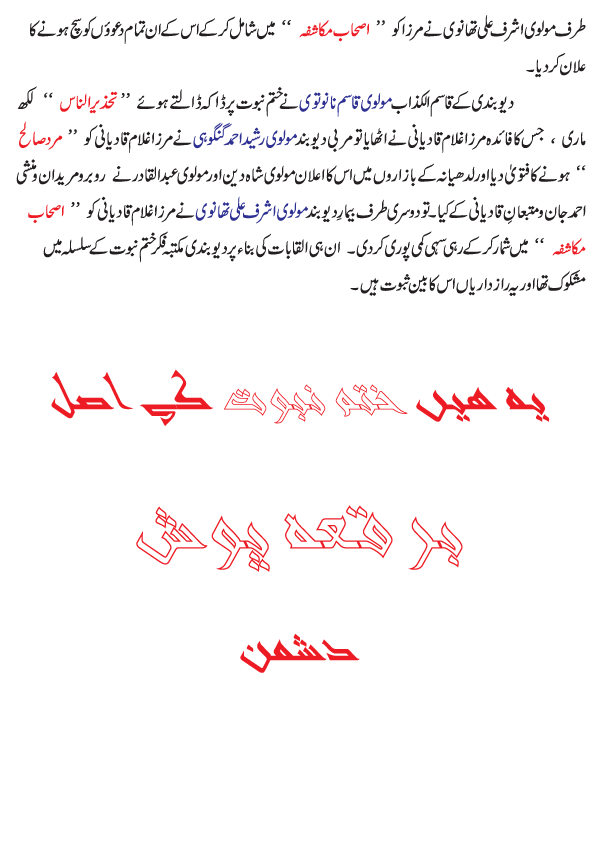 طرف مولوی اشرف علی تھانوی نے مرزا کو ’’ اصحاب مکاشفہ ‘‘ میں شامل کر کے اس کے ان تمام دعوؤں کو سچ ہونے کا
علان کر دیا۔
دیوبندی کے قاسم الکذاب مولوی قاسم نانوتوی نے ختم نبوت پر ڈاکہ ڈالتے ہوئے ’’ تحذیر الناس ‘‘ لکھ
ماری ، جس کا فائدہ مرزا غلام قادیانی نے اٹھایا تو مربی دیوبند مولوی رشید احمد گنگوہی نے مرزا غلام قادیانی کو ’’ مرد صالح
‘‘ ہونے کا فتویٰ دیا اور لدھیانہ کے بازاروں میں اس کا اعلان مولوی شاہ دین اور مولوی عبدالقادر نے روبرو مریدان ومنشی
احمد جان ومتبعانِ قادیانی کے کیا۔ تو دوسری طرف بیمارِ دیوبند مولوی اشرف علی تھانوی نے مرزا غلام قادیانی کو ’’ اصحاب
مکاشفہ ‘‘ میں شمار کر کے رہی سہی کمی پوری کردی۔ ان ہی القابات کی بناء پر دیوبندی مکتبہ فکر ختم نبوت کے سلسلہ میں
مشکوک تھا اور یہ راز داریاں اس کا بین ثبوت ہیں۔
یہ ھیں ختم نبوت کے اصل
بر قعہ پوش
دشمن